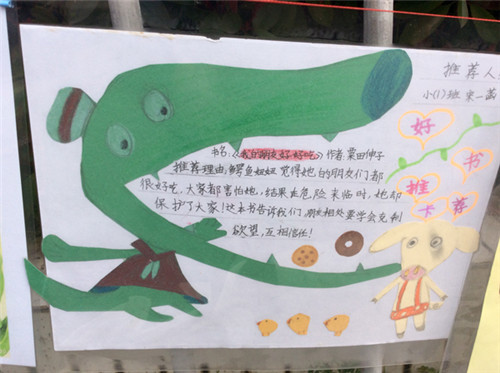 推荐人
小(1)班 宋一菡
书名:《我的朋友好好吃》作者:粟田伸子
推荐理由:鳄鱼妞妞觉得她的朋友们都
很好吃,大家都害怕她。结果在危险来临时,她却
保护了大家!这本书告诉我们,朋友相处要学会克制
欲望,互相信任!
好
书
推
荐
卡